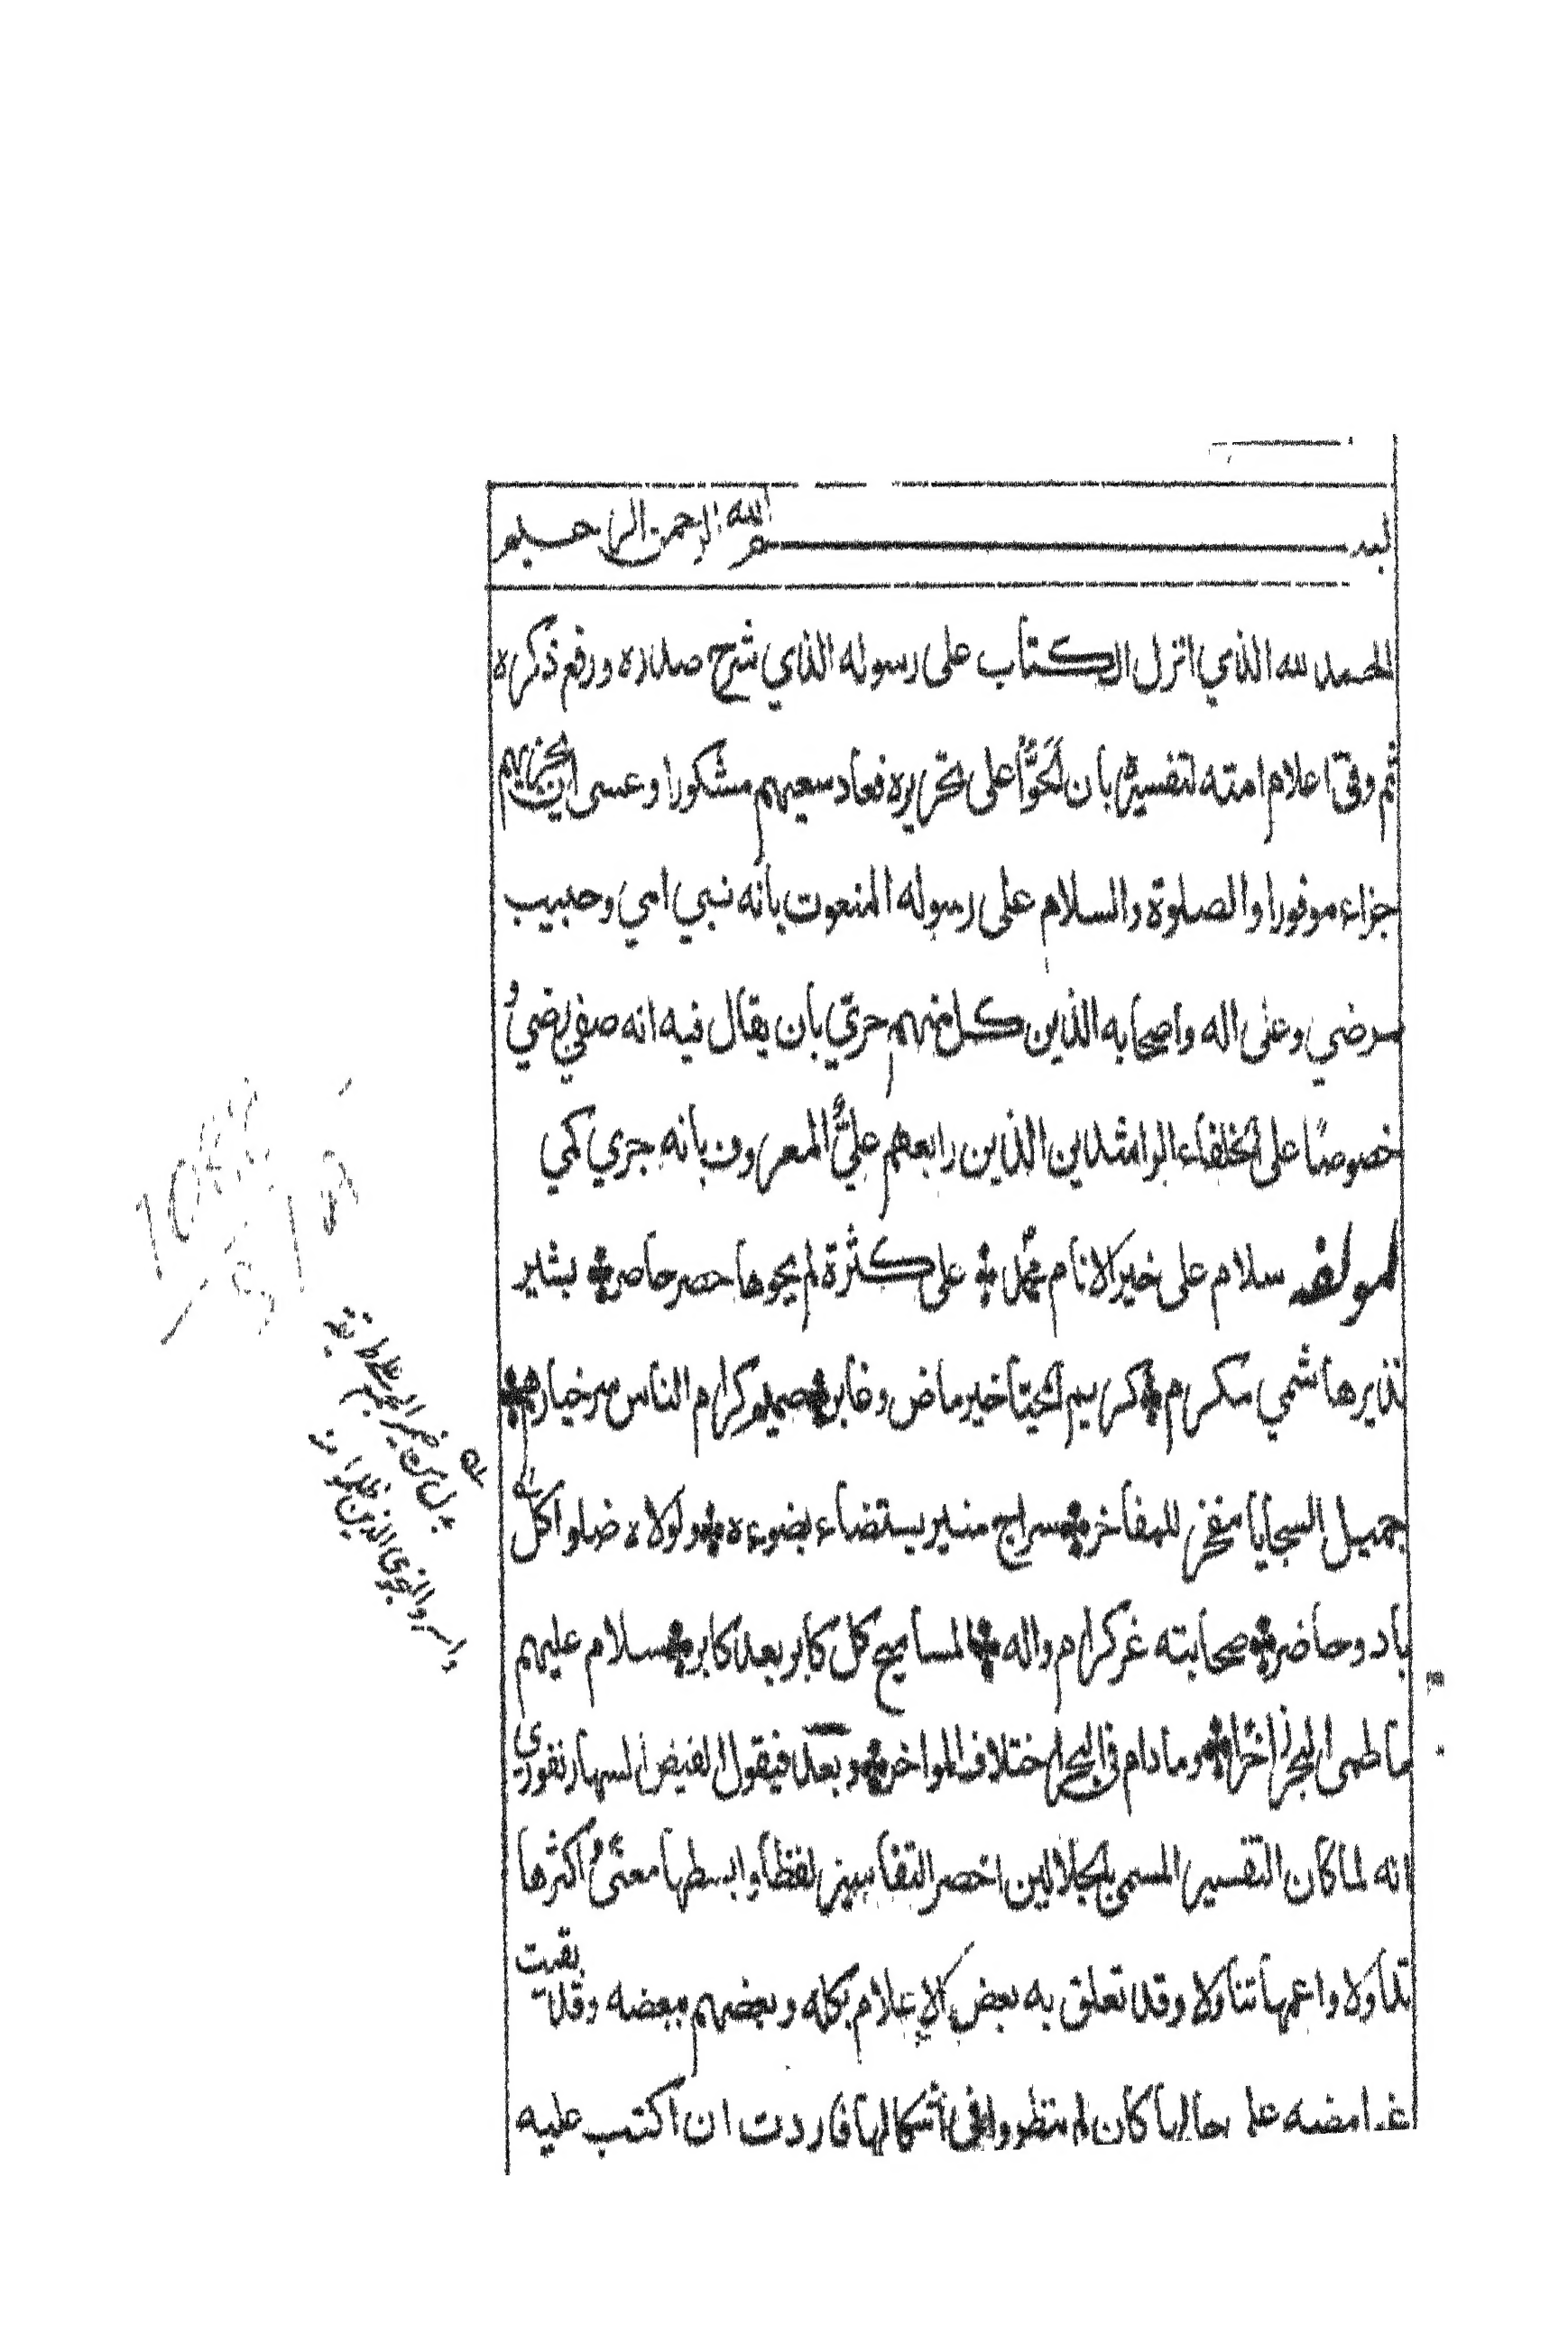 بسم الله الرحمن الرحيم
الحمد لله الذي انزل الكتاب على رسوله الذي شرح صدره ورفع ذكره
ثم وفق اعلام امته لتفسيره بان نحوا على تحريره فعاد سعيهم مشكورا وعسى ان يجزيهم
جزاء موفورا والصلوة والسلام على رسوله المنعوت بانه نبي امي وحبيب
مرضي وعلى اله واصحابه الذين كل منهم حري بان يقال فيه انه صفي رضي و
خصوصًا على الخلفاء الراشدين الذين رابعهم عليٌّ المعروف بانه جري كمي
لمولفه سلام على خير الانام محمد على كثرة لم يحوها حصر حاصر بشير
نذير هاشمي مكرم كريم المحيّا خير ماض وغابر صميم كرام الناس سر خيارهم
جميل السجايا مفخر للمفاخر سراج منير يستضاء بضوءه ولولاه ضلوا كل
باد وحاضر صحابته غر كرام واله المساميح كل كابر بعد كابر سلام عليهم
ما طمى البحر زاخرًا وما دام في البحر اختلاف المواخر وبعد فيقول الفيض السهارنفوري
انه لما كان التفسير المسمى بالجلالين اخصر التفاسير لفظًا وابسطها معنًى و اكثرها
تداولا واعمها تناولا وقد تعلق به بعض الاعلام بكله وبعضهم ببعضه وقد بقيت
غدامضه على حالها كان لم ينظروا في اشكالها فاردت ان اكتب عليه